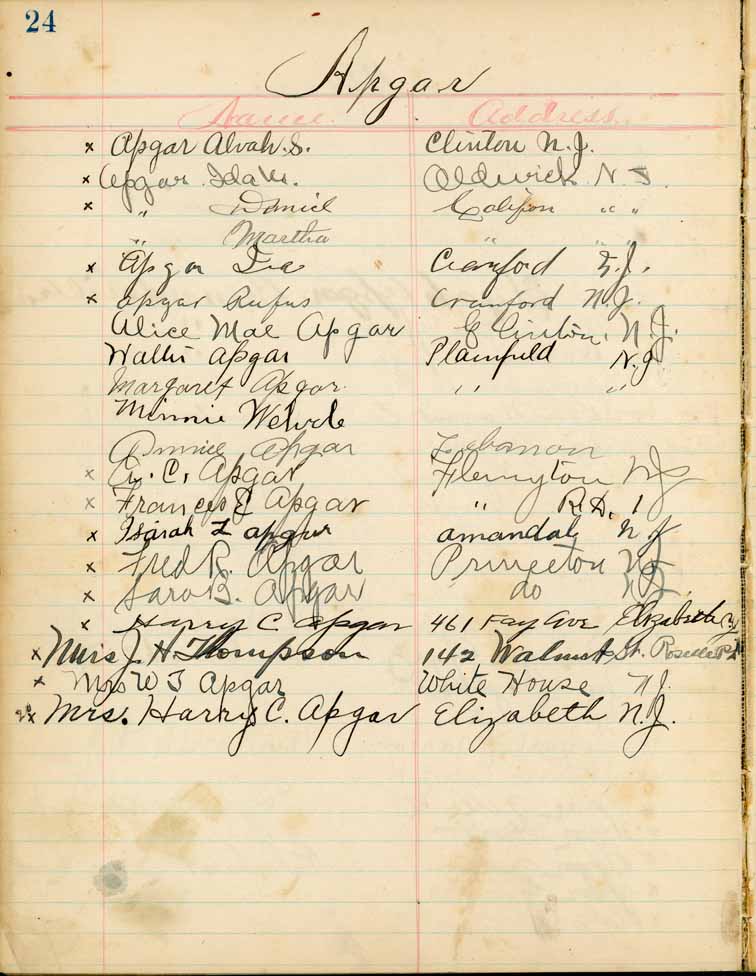 24
Apgar
Name. Address.
x Apgar Alvah. S. Clinton N. J.
x Apgar Ida M. Oldwick N. J.
x " Daniel Califon " "
" Martha " " "
x Apgar Ira Cranford N. J.
x Apgar Rufus Cranford N. J.
Alice Mae Apgar Clinton, N. J.
Apgar Plainfield N. J.
Margaret Apgar " "
Minnie
Annie Apgar Lebanon
x C. Apgar Flemington N J
x Frances E Apgar " R. D. 1
x Isarah L apgar annandale N J
x Fred R. Apgar Princeton N J
x Sara B. Apgar do N J
x Harry C Apgar 461 Fay Ave Elizabeth
x Mrs J. H Thompson 142 Walnut St. Roselle Pk
x Mrs W J Apgar White House N J.
x Mrs. Harry C. Apgar Elizabeth N. J.